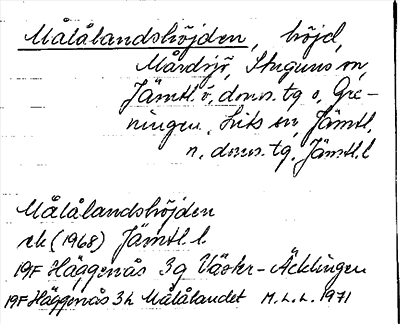 Målålandshöjden, höjd,
Mårdsjö, Stuguns sn,
Jämtl. ö. doms. tg o, Gre-
ningen, Lits sn, Jämtl.
n. doms. tg. Jämtl. l
Målålandshöjden
rk (1968) Jämtl. l.
19F Häggenås 3g Väster-Acklingen
19F Häggenås 3h Målålandet M.L.L. 1971